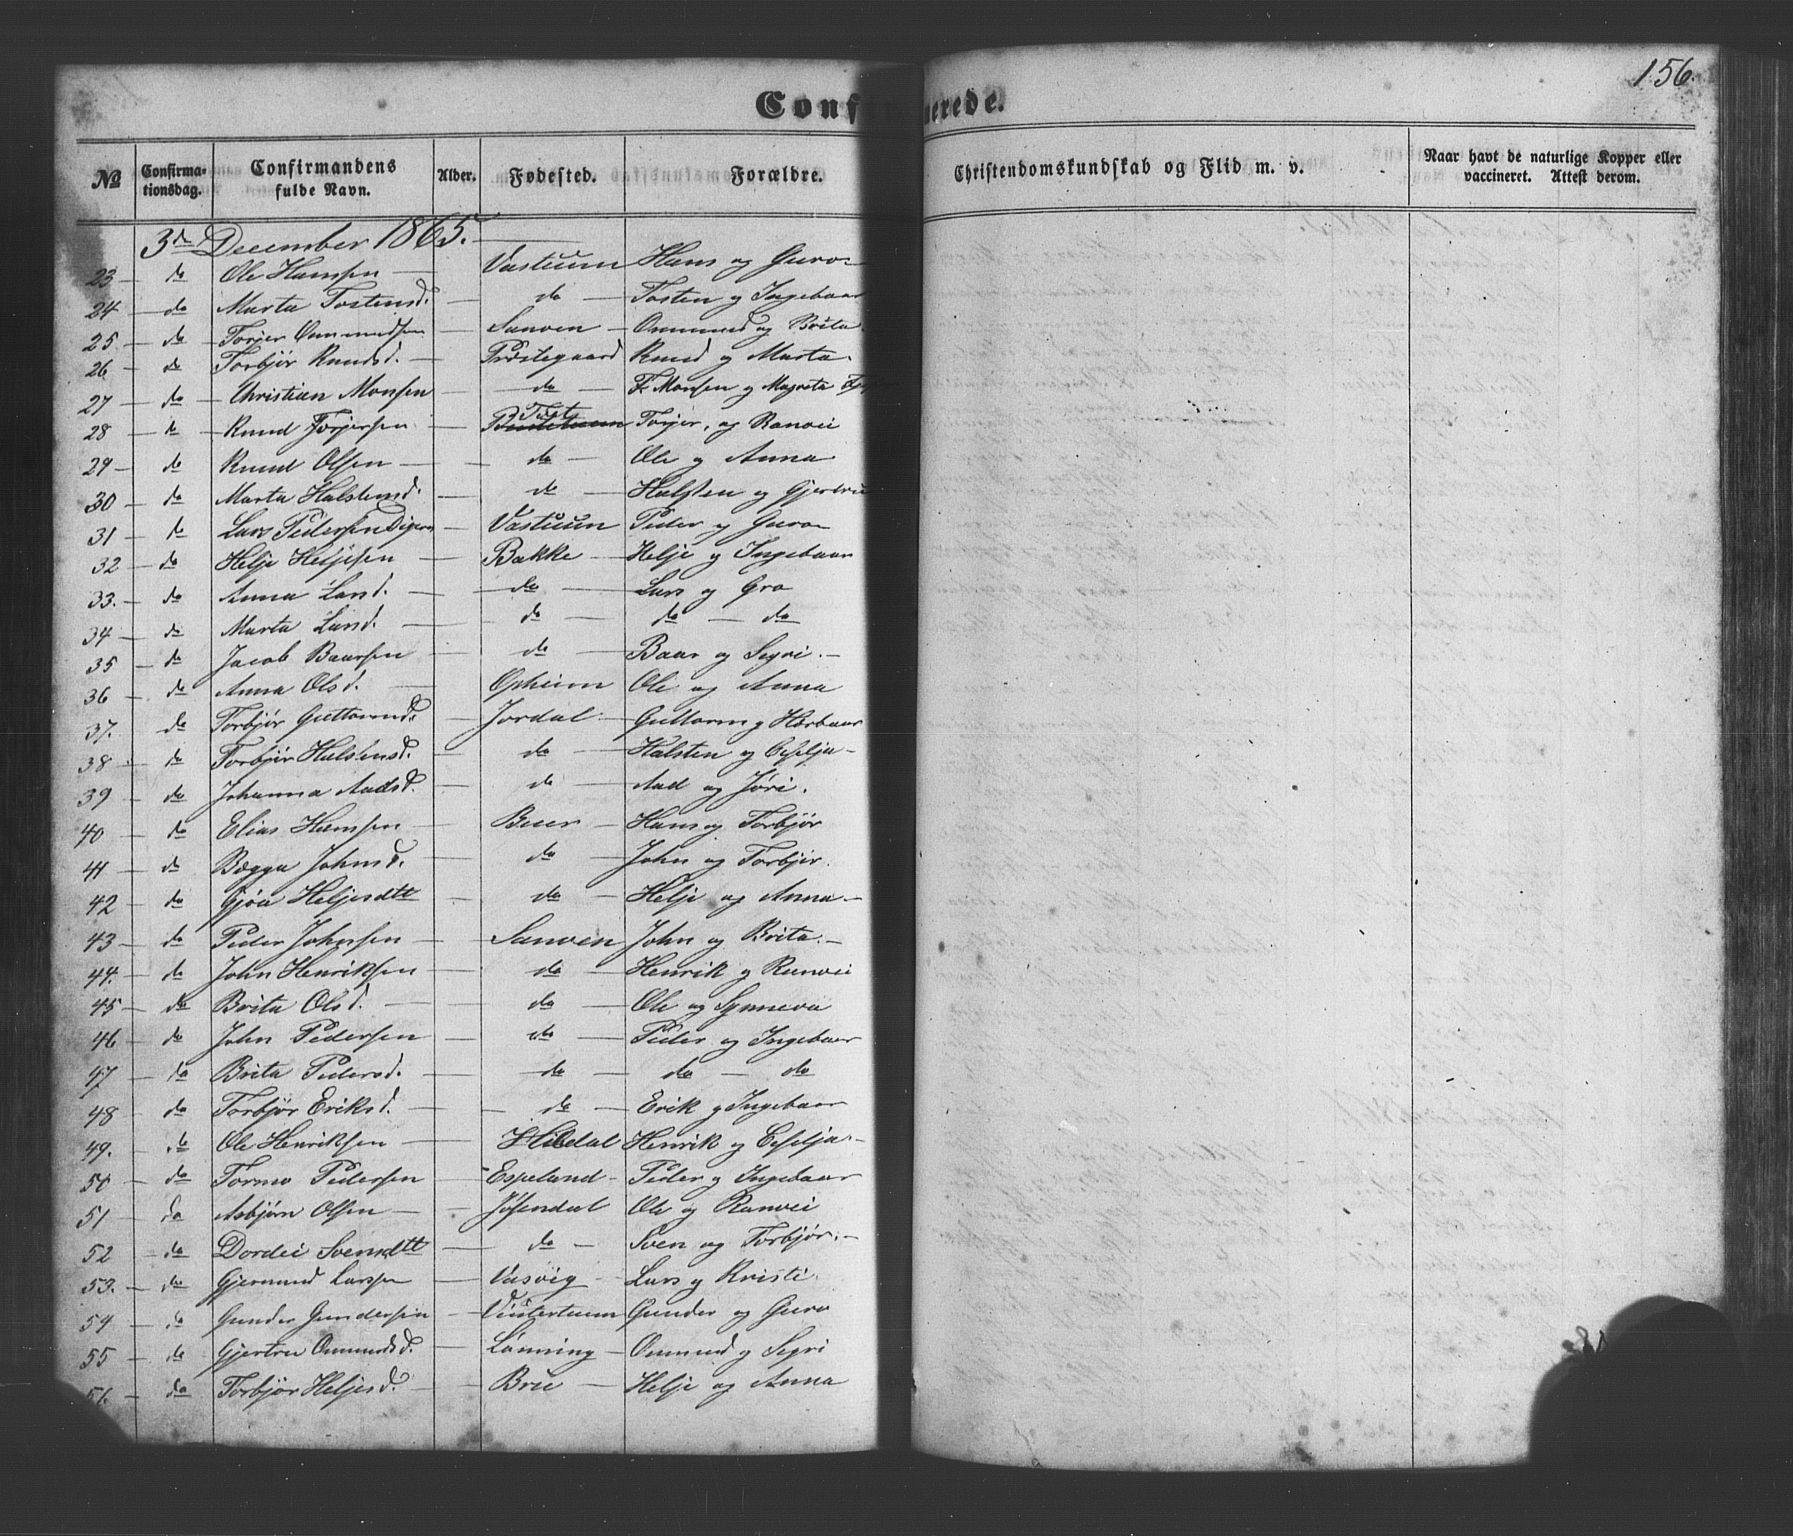 156.
Conf nerede.
No Confirma-tionsdag. Confirmandens fulde Navn. Alder. Fødested. Forældre. Christendomskundskab og Flid m. v. Naar havt de naturlige Kopper eller vaccineret. Attest derom.
3d December 1865.
23 — do Ole Hansen — Vastuun Hans og Guro
24 — do Marta Tostensd. — do — Tosten og Ingebaar
25 — do Torjer Ommundsen — Sanven — Ommund og Brita
26 — do Torbjør Knudsd. — Præstegaard Knud og Marta
27 — do Christian Monsen — do — F. Monsen og Magreta
28 — do Knud Torjersen — Torjer, og Ranvei
29 — do Knud Olsen — do — Ole og Anna
30 — do Marta Halstensd. — do — Halsten og Gjertru
31 — do Lars Pedersen — Vastuun Peder og Guro
32 — do Helje Heljesen — Bakke — Helje og Ingebaar
33. — do Anna Larsd. — do — Lars og Gro
34 — do Marta Larsd. — do — do — do
35 — do Jacob Baarsen — do — Baar og Segri. —
36 — do Anna Olsd. — Opheim Ole og Anna
37. do Torbjør Guttormsd. — Jordal — Guttorm og Herbaar
38 — do Torbjør Halstensd. — do — Halsten og Ceselja —
39 — do Johanna Aadsd. — do — Aad og Jøri.
40 — do Elias Hansen — Buer — Hans og Torbjør
41 — do Bægga Johnsd. — do — John og Torbjør.
42 — do Gjøa Heljesdtt — do — Helje og Anna —
43 — do Peder Johnsen — Sanven John og Brita. —
44. — do John Henriksen — do — Henrik og Ranvei
45 — do Brita Olsd. — do — Ole og Synneva
46 — do John Pedersen — do — Peder og Ingebaar
47 — do Brita Pedersd. — do — do — do
48 — do Torbjør Eriksd. — do — Erik og Ingebaar
49. — do Ole Henriksen — Hildal Henrik og Ceselja. —
50 — do Tormo Pedersen — Espeland — Peder og Ingebaar
51 — do Asbjørn Olsen — Jøsendal Ole og Ranvei
52 — do Dordei Svensdtt — do — Sven og Torbjør. —
53. — do Gjermund Larsen — Vasvig — Lars og Kristi
54 — do Gunder Gundersen — Vintertuun Gunder og Guro
55 — do Gjertru Ommundsd. — Lønning — Ommund og Segri
56. — do Torbjør Heljesd. — Brie — Helje og Anna